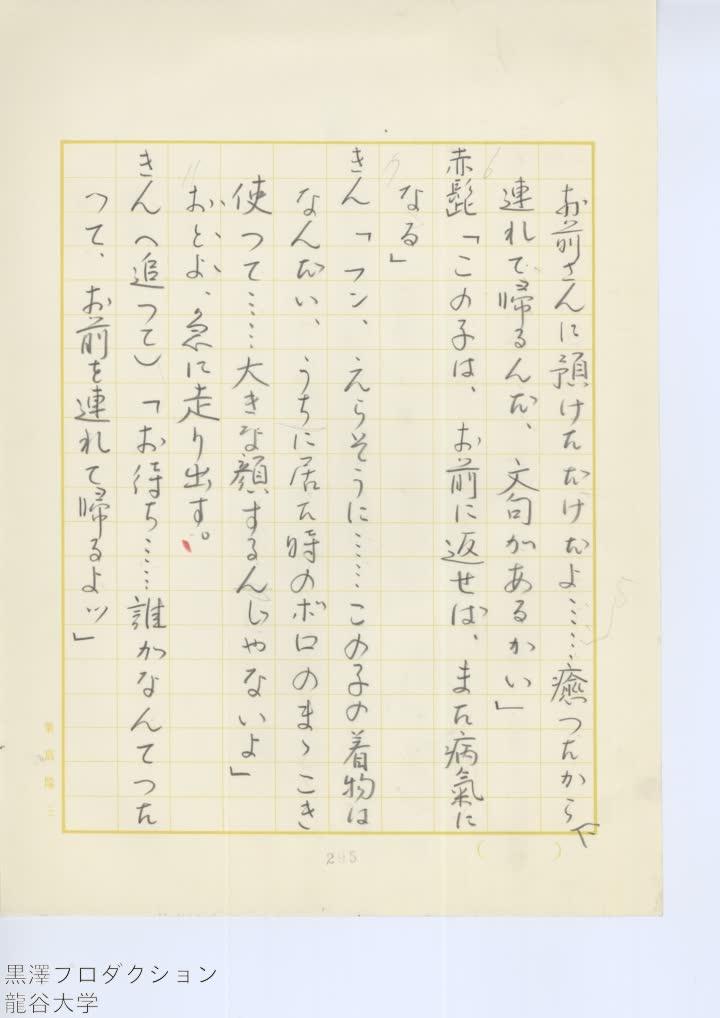 お前さんに預けただけだよ……癒つたから
連れて帰るんだ、文句があるかい」
赤髭「この子は、お前に返せば、また病氣に
なる」
きん「フン、えらそうに……この子の着物は
なんだい、うちに居た時のボロのまゝこき
使つて……大きな顔するんじやないよ」
おとよ、急に走り出す。
きん へ追つて）「お待ち……誰がなんてつた
つて、お前を連れて帰るよッ」
295
黒澤プロダクション
龍谷大学